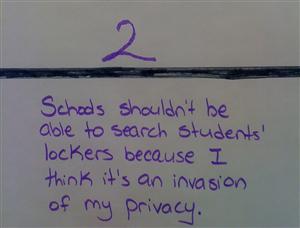 2
Schools shouldn't be
able to search students'
lockers because I
think it's an invasion
of my privacy.